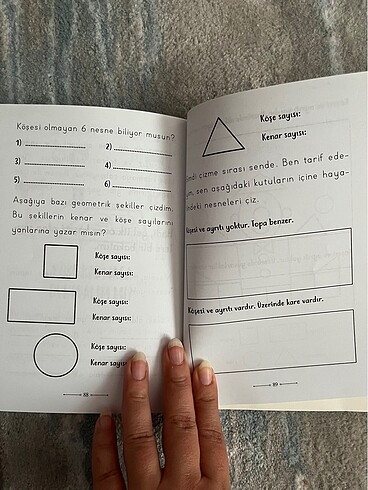 Köşesi olmayan 6 nesne biliyor musun?
1) 2)
3) 4)
5) 6)
Aşağıya bazı geometrik şekiller çizdim.
Bu şekillerin kenar ve köşe sayılarını
yanlarına yazar mısın?
Köşe sayısı:
Kenar sayısı:
Köşe sayısı:
Kenar sayısı:
Köşe sayısı:
Kenar sayısı:
88
Köşe sayısı:
Kenar sayısı:
çizme sırası sende. Ben tarif ede-
sen aşağıdaki kutuların içine haya-
nesneleri çiz.
Köşesi ve ayrıtı yoktur. Topa benzer.
Köşesi ve ayrıtı vardır. Üzerinde kare vardır.
89